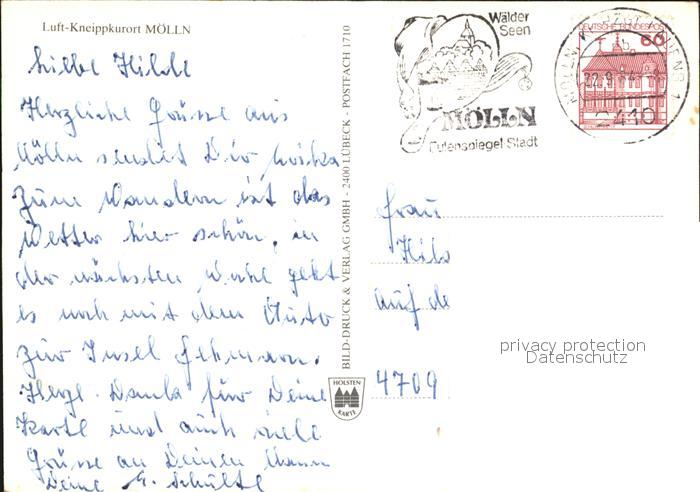 Luft-Kneippkurort MÖLLN
Liebe Hilde
Herzliche Grüsse aus
Mölln sendet Dir
zum Wandern ist das
Wetter hier schön, in
der nächsten Woche geht
es noch mit dem Auto
zur Insel Fehmarn.
Herzl. Dank für Deine
Karte und auch viele
Grüsse an Deinen Mann
Deine Schulte
BILD-DRUCK & VERLAG GMBH - 2400 LÜBECK - POSTFACH 1710
HOLSTEN
KARTE
Wälder
Seen
MÖLLN
Eulenspiegel-Stadt
DEUTSCHE BUNDESPOST
60
MÖLLN
22.9
2410
Frau
Hil
auf de
4709
privacy protection
Datenschutz